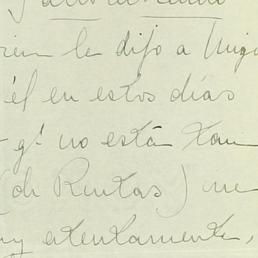 rien le dijo a Uniq
él en estos días
qe no está tan
(de Rentas) me
atentamente,